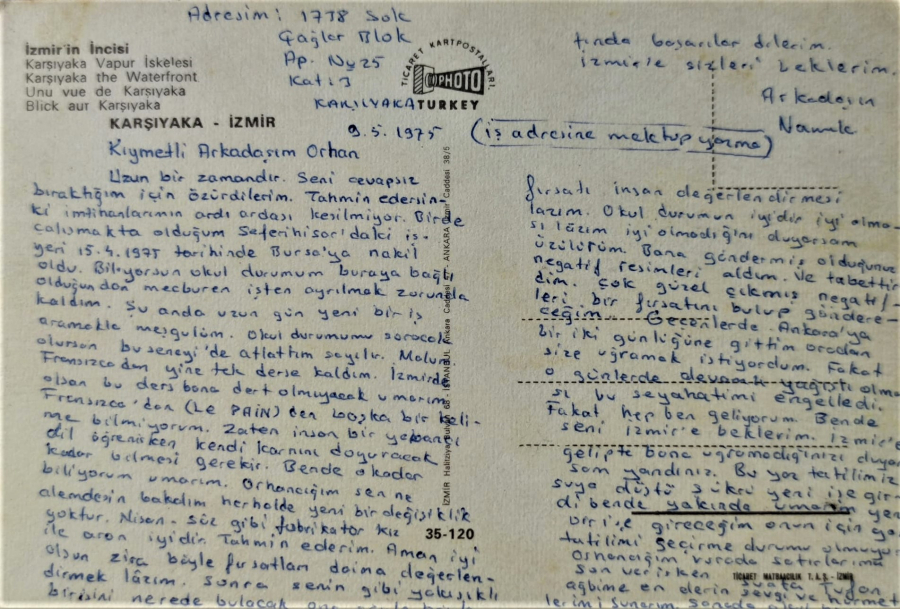 Adresim: 1778 Sok
Çağlar Blok
Ap. No 25
Kat: 3
KARŞIYAKA
İzmir'in İncisi
Karşıyaka Vapur İskelesi
Karşıyaka the Waterfront
Unu vue de Karşıyaka
Blick aur Karşıyaka
KARŞIYAKA - İZMİR
TİCARET KARTPOSTALLARI
PHOTO
TURKEY
9.5.1975
Kıymetli Arkadaşım Orhan
Uzun bir zamandır. Seni cevapsız
bıraktığım için özürdilerim. Tahmin edersin
ki imtihanlarımın ardı ardası kesilmiyor. Birde
çalışmakta olduğum Seferihisar'daki iş-
yeri 15.4.1975 tarihinde Bursa'ya nakil
oldu. Biliyorsun okul durumum buraya bağlı
olduğundan mecburen işten ayrılmak zorunda
kaldım. Şu anda uzun gün yeni bir iş
aramekle meşgulüm. Okul durumumu soracak
olursan bu seneyi'de atlattım sayılır. Malum
Fransızcadan yine tek derse kaldım. İzmirde
olsan bu ders bana dert olmıyacak umarım
Fransızca'dan (Le PAİN) den başka bir keli-
me bilmiyorum. Zaten insan bir yabancı
dil öğrenirken kendi karnını doyuracak
kadar bilmesi gerekir. Bende o kadar
biliyorum umarım. Orhancığım sen ne
alemdesin bakalım herhalde yeni bir değişiklik
yoktur. Nisan - Söz gibi fabrikatör kız
ile aran iyidir. Tahmin ederim. Aman iyi
olsun zira böyle fırsatları daima değerlen-
dirmek lâzım. Sonra senin gibi yakışıklı
birisini nerede bulacak
İZMİR Halitziya Bulvarı 68 - İSTANBUL Ankara Caddesi - ANKARA İzmir Caddesi 38/5
35-120
fırsatı insan değerlendirmesi
lâzım. Okul durumun iyidir iyi olma-
sı lâzım iyi olmadığını duyarsam
üzülürüm. Bana göndermiş olduğunuz
negatif resimleri aldım. Ve tabettir-
dim. Çok güzel çıkmış negatif-
leri bir fırsatını bulup göndere-
ceğim. Geçenlerde Ankara'ya
bir iki günlüğüne gittim oradan
size uğramak istiyordum. Fakat
o günlerde devamlı yağışlı olma-
sı bu seyahatimi engelledi.
Fakat hep ben geliyorum. Bende
seni İzmir'e beklerim. İzmir'e
gelipte bana uğramadığınızı duyar
sam yandınız. Bu yaz tatilimiz
suya düştü Şükrü yeni işe gir-
di bende yakında umarım yeni
bir işe gireceğim onun için yaz
tatilimi geçirme durumu olmuyor
Orhancığım burada satırlarıma
son verirken
ağbime en derin sevgi ve hürmet
lerimi sunarım sanada
TİCARET MATBAACILIK T.A.Ş - İZMİR
tında başarılar dilerim.
İzmir'e sizleri beklerim.
Arkadaşın
Namık
(iş adresine mektup yazma)